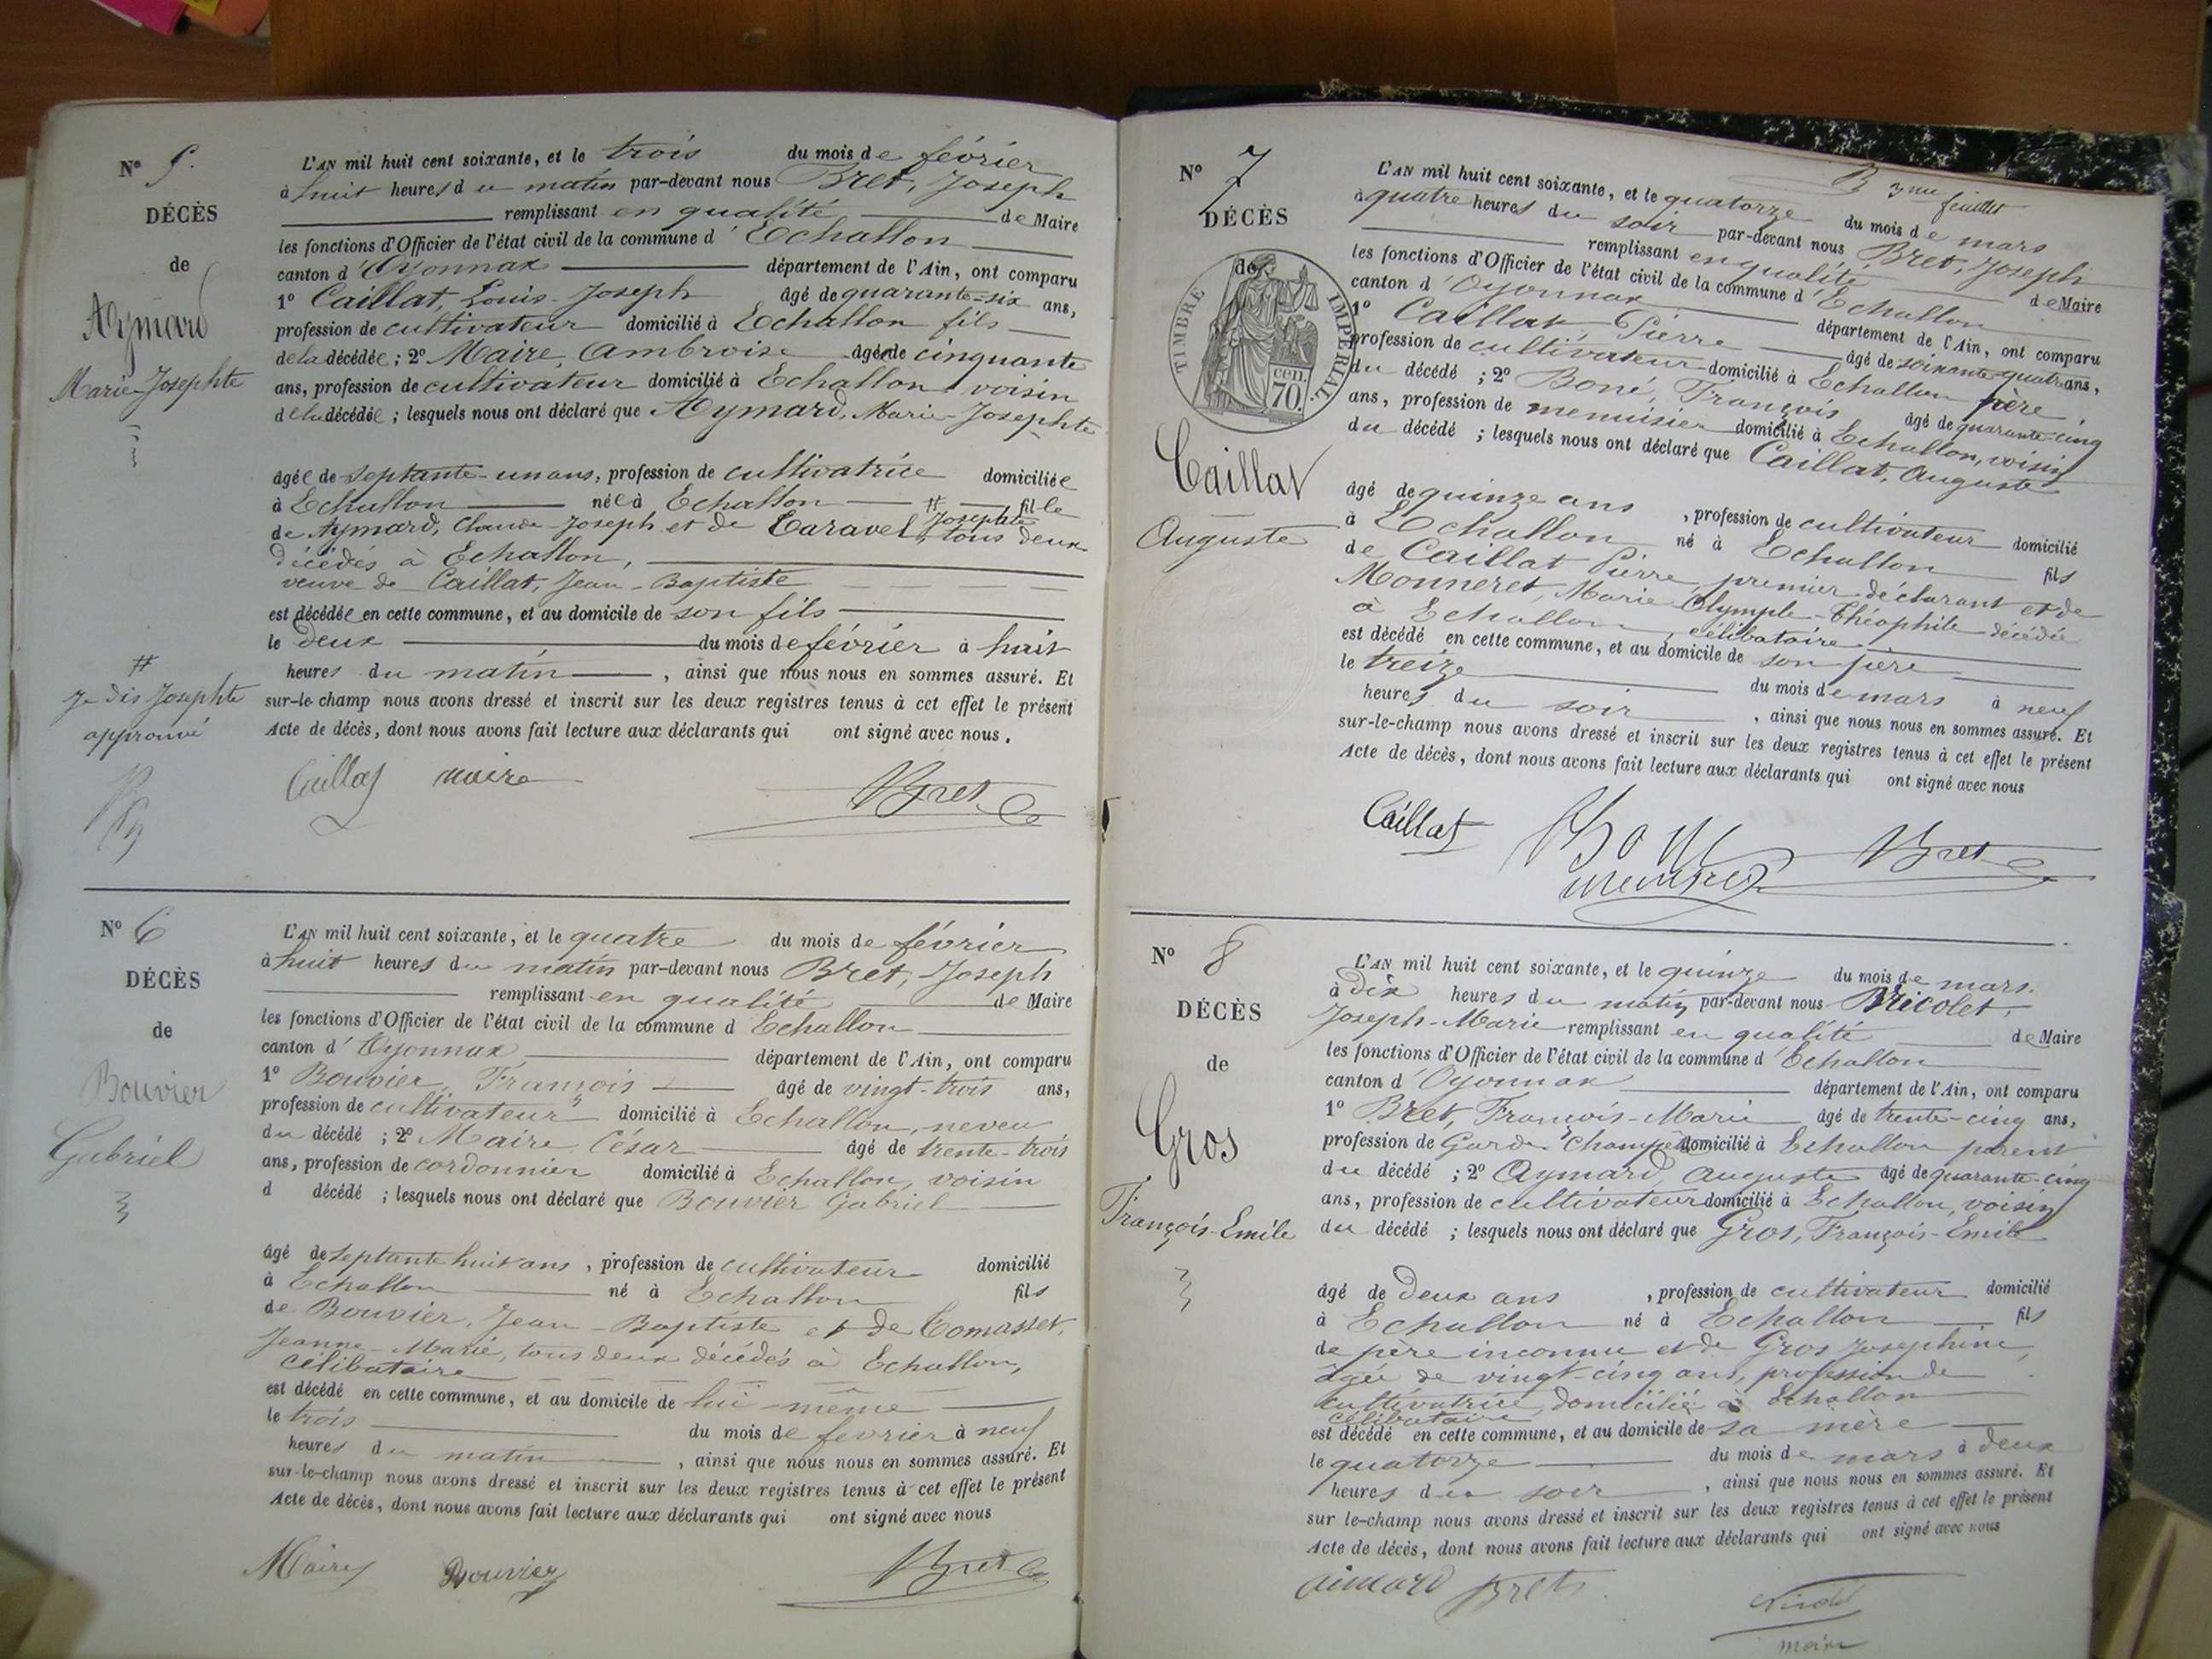 Nº 5.
DÉCÈS
de
Aymard
Marie-Josephte
L'AN mil huit cent soixante, et le trois du mois de février
à huit heures du matin par-devant nous Bret, Joseph
remplissant en qualité de Maire
les fonctions d'Officier de l'état civil de la commune d'Echallon
canton d'Oyonnax département de l'Ain, ont comparu
1º Caillat, Louis-Joseph âgé de quarante-six ans,
profession de cultivateur domicilié à Echallon fils
de la décédée ; 2º Maire, Ambroise âgé de cinquante
ans, profession de cultivateur domicilié à Echallon voisin
de la décédée ; lesquels nous ont déclaré que Aymard, Marie-Josephte
âgée de septante-un ans, profession de cultivatrice domiciliée
à Echallon née à Echallon # fille
de Aymard, Claude-Joseph et de Caravel, Josephte tous deux
décédés à Echallon,
veuve de Caillat, Jean-Baptiste
est décédée en cette commune, et au domicile de son fils
le deux du mois de février à huit
heures du matin, ainsi que nous nous en sommes assuré. Et
sur-le-champ nous avons dressé et inscrit sur les deux registres tenus à cet effet le présent
Acte de décès, dont nous avons fait lecture aux déclarants qui ont signé avec nous.
#
je dis Josephte
approuvé
Caillat maire Bret
Nº 6
DÉCÈS
de
Bouvier
Gabriel
L'AN mil huit cent soixante, et le quatre du mois de février
à huit heures du matin par-devant nous Bret, Joseph
remplissant en qualité de Maire
les fonctions d'Officier de l'état civil de la commune d Echallon
canton d'Oyonnax département de l'Ain, ont comparu
1º Bouvier, François âgé de vingt-trois ans,
profession de cultivateur domicilié à Echallon, neveu
du décédé ; 2º Maire César âgé de trente-trois
ans, profession de cordonnier domicilié à Echallon, voisin
d décédé ; lesquels nous ont déclaré que Bouvier Gabriel
âgé de septante huit ans, profession de cultivateur domicilié
à Echallon né à Echallon fils
de Bouvier, Jean-Baptiste et de Comasset,
Jeanne-Marie, tous deux décédés à Echallon,
célibataire
est décédé en cette commune, et au domicile de lui-même
le trois du mois de fevrier à neuf
heures du matin, ainsi que nous nous en sommes assuré. Et
sur-le-champ nous avons dressé et inscrit sur les deux registres tenus à cet effet le présent
Acte de décès, dont nous avons fait lecture aux déclarants qui ont signé avec nous
Maire Bouvier Bret
B 3me feuillet
Nº 7
DÉCÈS
de
TIMBRE IMPÉRIAL.
70. cen.
Caillat
Auguste
L'AN mil huit cent soixante, et le quatorze du mois de mars
à quatre heures du soir par-devant nous Bret, Joseph
remplissant en qualité de Maire
les fonctions d'Officier de l'état civil de la commune d'Echallon
canton d'Oyonnax département de l'Ain, ont comparu
1º Caillat, Pierre âgé de soixante-quatre ans,
profession de cultivateur domicilié à Echallon père
du décédé ; 2º Boné, François âgé de quarante-cinq
ans, profession de menuisier domicilié à Echallon, voisin
du décédé ; lesquels nous ont déclaré que Caillat, Auguste
âgé de quinze ans, profession de cultivateur domicilié
à Echallon né à Echallon fils
de Caillat Pierre, premier déclarant et de
Monneret, Marie Olymple-Théophile décédée
à Echallon, célibataire
est décédé en cette commune, et au domicile de son père
le treize du mois de mars à neuf
heures du soir, ainsi que nous nous en sommes assuré. Et
sur-le-champ nous avons dressé et inscrit sur les deux registres tenus à cet effet le présent
Acte de décès, dont nous avons fait lecture aux déclarants qui ont signé avec nous
Caillat Boné Bret
menuisier
Nº 8
DÉCÈS
de
Gros
François-Emile
L'AN mil huit cent soixante, et le quinze du mois de mars.
à dix heures du matin par-devant nous Nicolet,
Joseph-Marie remplissant en qualité de Maire
les fonctions d'Officier de l'état civil de la commune d'Echallon
canton d'Oyonnax département de l'Ain, ont comparu
1º Bret, François-Marie âgé de trente-cinq ans,
profession de Garde Champêtre domicilié à Echallon parent
du décédé ; 2º Aymard, Auguste âgé de quarante-cinq
ans, profession de cultivateur domicilié à Echallon, voisin
du décédé ; lesquels nous ont déclaré que Gros, François-Emile
âgé de deux ans, profession de cultivateur domicilié
à Echallon né à Echallon fils
de père inconnu et de Gros Josephine,
âgée de vingt-cinq ans, profession de
cultivatrice, domiciliée à Echallon
célibataire
est décédé en cette commune, et au domicile de sa mère
le quatorze du mois de mars à deux
heures du soir, ainsi que nous nous en sommes assuré. Et
sur le-champ nous avons dressé et inscrit sur les deux registres tenus à cet effet le présent
Acte de décès, dont nous avons fait lecture aux déclarants qui ont signé avec nous
aimard Bret Nicolet
maire